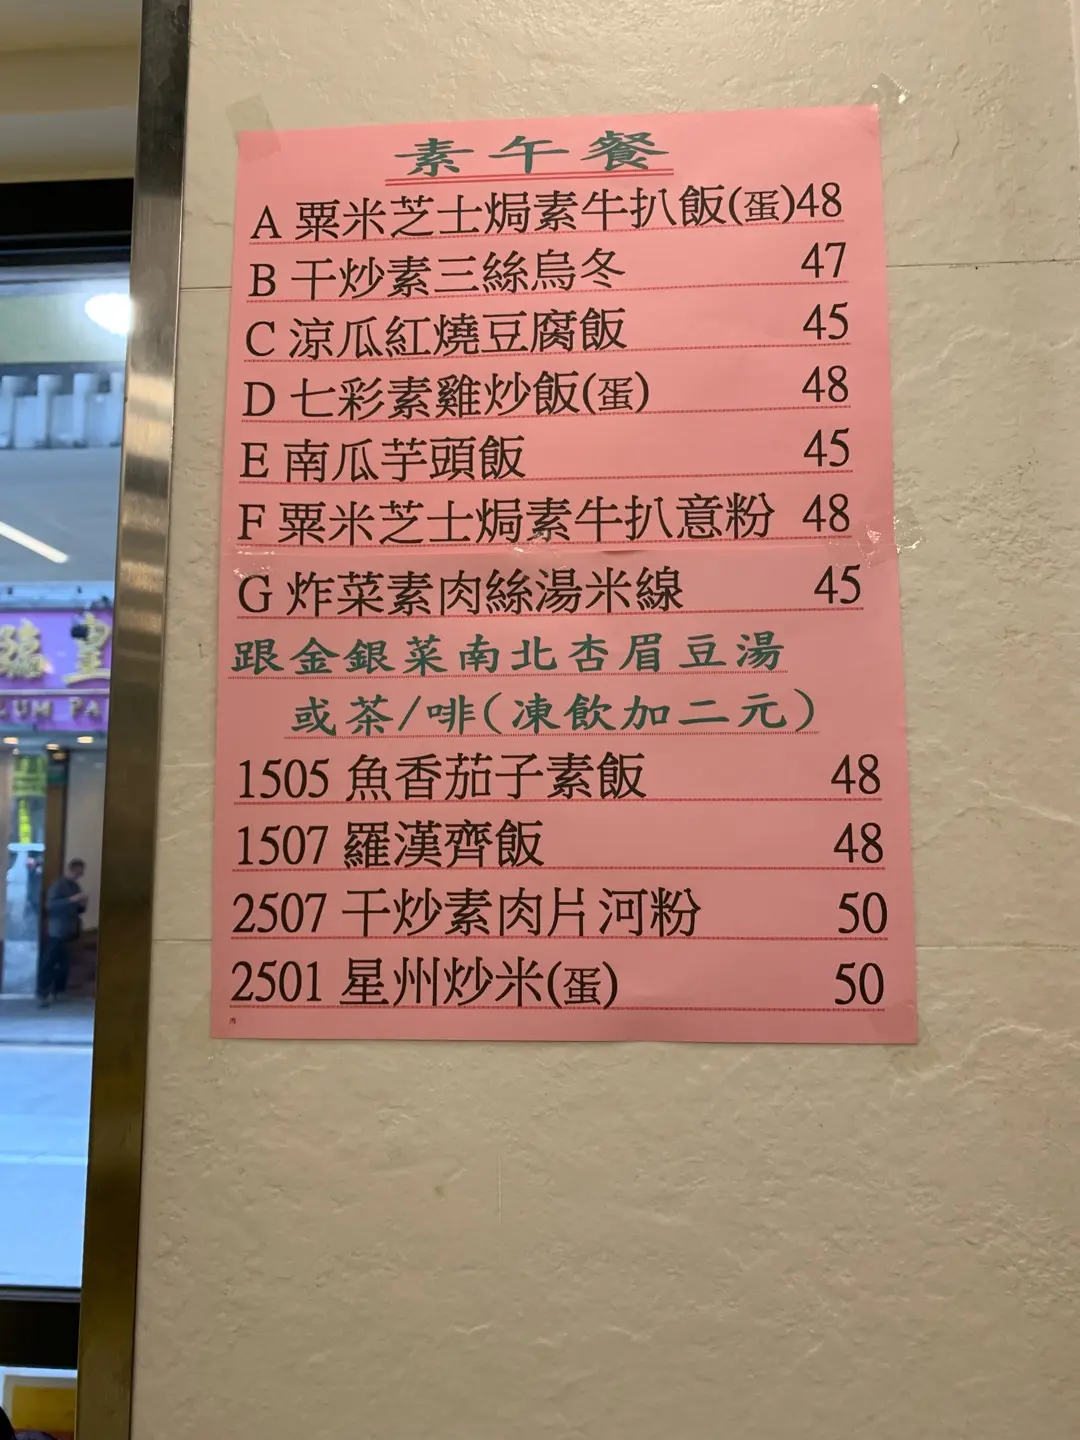 素午餐
A 粟米芝士焗素牛扒飯(蛋)48
B 干炒素三絲烏冬 47
C 涼瓜紅燒豆腐飯 45
D 七彩素雞炒飯(蛋) 48
E 南瓜芋頭飯 45
F 粟米芝士焗素牛扒意粉 48
G 炸菜素肉絲湯米線 45
跟金銀菜南北杏眉豆湯
或茶/啡(凍飲加二元)
1505 魚香茄子素飯 48
1507 羅漢齊飯 48
2507 干炒素肉片河粉 50
2501 星州炒米(蛋) 50
皇
LUM PA